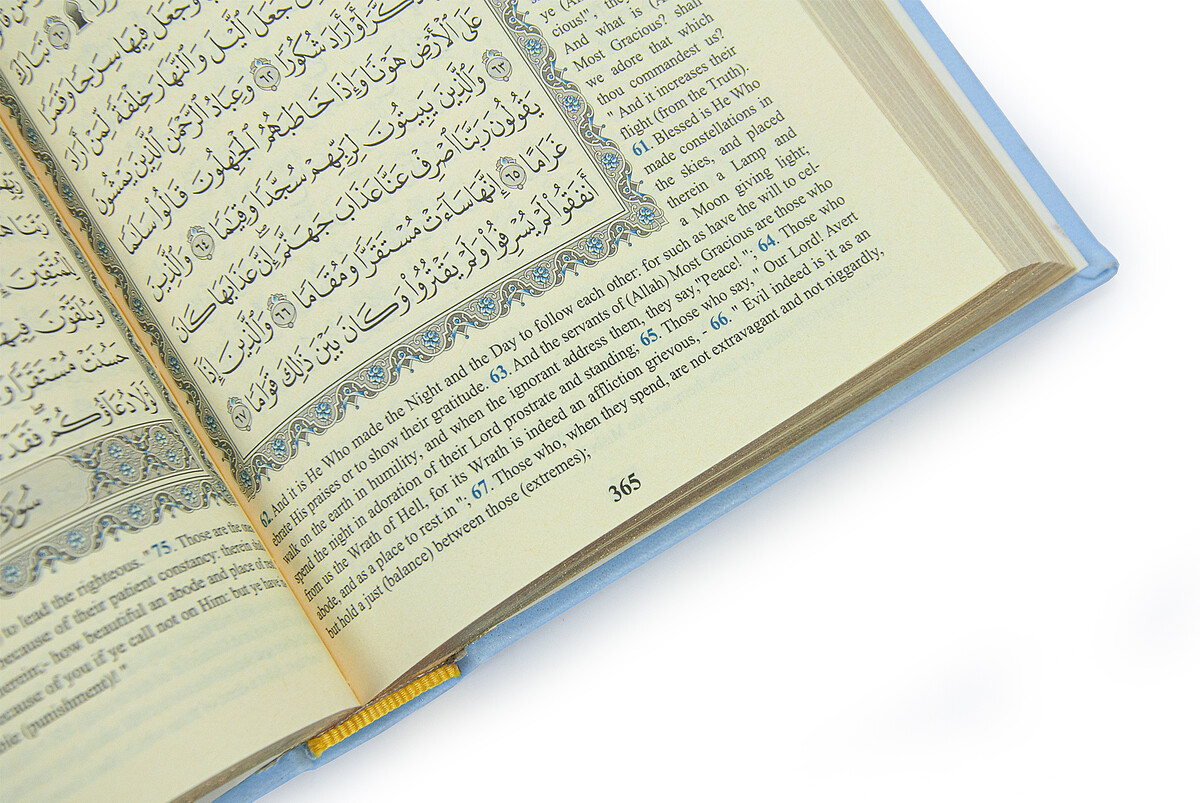 تَبَارَكَ
جَعَلَ فِيهَا سِرَاجًا وَقَمَرًا
جَعَلَ الَّيْلَ وَالنَّهَارَ خِلْفَةً لِّمَنْ أَرَادَ
أَوْ أَرَادَ شُكُورًا ٦٢ وَعِبَادُ الرَّحْمَٰنِ الَّذِينَ يَمْشُونَ
عَلَى الْأَرْضِ هَوْنًا وَإِذَا خَاطَبَهُمُ الْجَٰهِلُونَ قَالُوا سَلَٰمًا
٦٣ وَالَّذِينَ يَبِيتُونَ لِرَبِّهِمْ سُجَّدًا وَقِيَٰمًا ٦٤ وَالَّذِينَ
يَقُولُونَ رَبَّنَا اصْرِفْ عَنَّا عَذَابَ جَهَنَّمَ إِنَّ عَذَابَهَا كَانَ
غَرَامًا ٦٥ إِنَّهَا سَاءَتْ مُسْتَقَرًّا وَمُقَامًا ٦٦ وَالَّذِينَ إِذَا
أَنفَقُوا لَمْ يُسْرِفُوا وَلَمْ يَقْتُرُوا وَكَانَ بَيْنَ ذَٰلِكَ قَوَامًا ٦٧
And what is
Most Gracious? shall
we adore that which
thou commandest us?
" And it increases their
flight (from the Truth).
61. Blessed is He Who
made constellations in
the skies, and placed
therein a Lamp and
a Moon giving light;
62. And it is He Who made the Night and the Day to follow each other: for such as have the will to cel-
ebrate His praises or to show their gratitude. 63. And the servants of (Allah) Most Gracious are those who
walk on the earth in humility, and when the ignorant address them, they say,"Peace! "; 64. Those who
spend the night in adoration of their Lord prostrate and standing; 65. Those who say, " Our Lord! Avert
from us the Wrath of Hell, for its Wrath is indeed an affliction grievous, - 66. " Evil indeed is it as an
abode, and as a place to rest in "; 67. Those who, when they spend, are not extravagant and not niggardly,
but hold a just (balance) between those (extremes);
365
حَسُنَتْ مُسْتَقَرًّا
دُعَاؤُكُمْ فَقَدْ
سُورَة
to lead the righteous. " 75. Those are the
because of their patient constancy: therein
therein;- how beautiful an abode and place of
because of you if ye call not on Him: but ye have
(punishment)! "